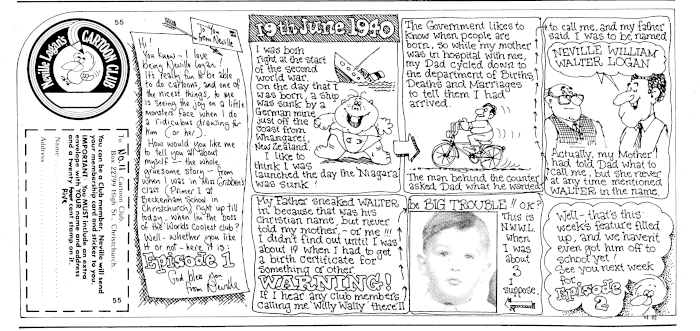 55
Neville Logan's
CARTOON CLUB
To: No.1 Cartoon Club
Box 22799 High St. Christchurch.
Name
Address
You can be a Club member. Neville will send
your membership card and sticker to you.
IMPORTANT: You MUST include an extra
envelope with YOUR name and address
and a twenty five cent stamp on it.
55
To You
from Neville
Hi!
You know - I love
being Neville Logan!
It's really fun to be able
to do cartoons, and one of
the nicest things, to me
is seeing the joy on a little
monsters face when I do
a ridiculous drawing for
him (or her).
How would you like me
to tell you all about
myself - the whole
gruesome story - from
when I was in Miss Gribben's
class (Primer 1 at
Beckenham School in
Christchurch) right up till
today, when I'm the boss
of the Worlds Coolest club?
Well - whether you like
it or not - here it is:
Episode 1
God bless you
from Neville
19th June 1940
I was born
right at the start
of the second
world war.
On the day that I
was born, a ship
was sunk by a
German mine
just off the
coast from
Whangarei,
New Zealand.
I like to
think I was
launched the day the 'Niagara'
was sunk!
The Government likes to
know when people are
born, so while my mother
was in hospital with me,
my Dad cycled down to
the department of Births,
Deaths and Marriages
to tell them I had
arrived.
The man behind the counter
asked Dad what he wanted
to call me, and my father
said I was to be named
NEVILLE WILLIAM
WALTER LOGAN
Actually, my Mother
had told Dad what to
call me, but she never
at any time mentioned
WALTER in the name.
My Father sneaked WALTER
in because that was his
Christian name but never
told my mother, - or me !!!
I didn't find out until I was
about 19 when I had to get
a birth certificate for
something or other
WARNING!
If I hear any club members
calling me 'Willy Wally' there'll
be BIG TROUBLE!! OK?
This is
N.W.W.L.
when
I was
about
3
I
suppose.
Well - that's this
week's feature filled
up, and we haven't
even got him off to
school yet!
See you next week
for
Episode
2